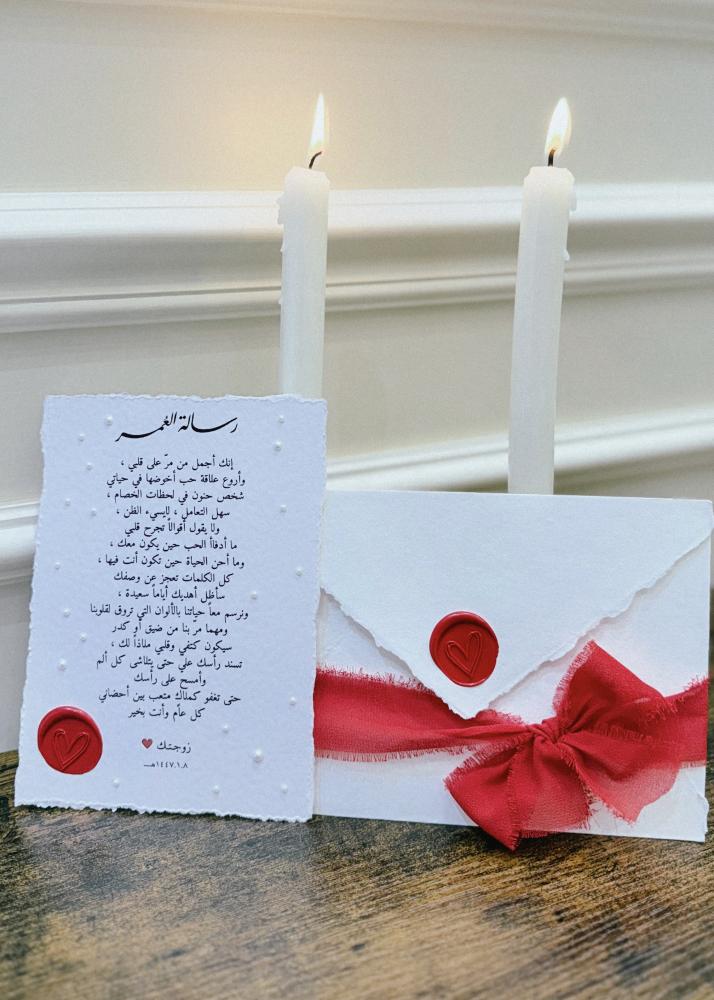 رسالة العُمر
إنك أجمل من مرّ على قلبي ،
وأروع علاقة حب أخوضها في حياتي
شخص حنون في لحظات الخصام ،
سهل التعامل ، لايسيء الظن ،
ولا يقول أقوالاً تجرح قلبي
ما أدفاأ الحب حين يكون معك ،
وما أحن الحياة حين تكون أنت فيها ،
كل الكلمات تعجز عن وصفك
سأظل أهديك أياماً سعيدة ،
ونرسم معاً حياتنا بالألوان التي تروق لقلوبنا
ومهما مرّ بنا من ضيق أو كدر
سيكون كتفي وقلبي ملاذاً لك ،
تسند رأسك علي حتى يتلاشى كل ألم
وأمسح على رأسك
حتى تغفو كملاك متعب بين أحضاني
كل عام وأنت بخير
زوجتك ❤
١٤٤٧.١.٨هـ